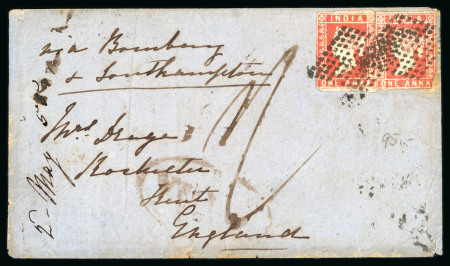 via Bombay
& Southampton
INDIA
ONE ANNA
ONE ANNA
Mrs Drage
Rochester
Kent
England
2 May
95-